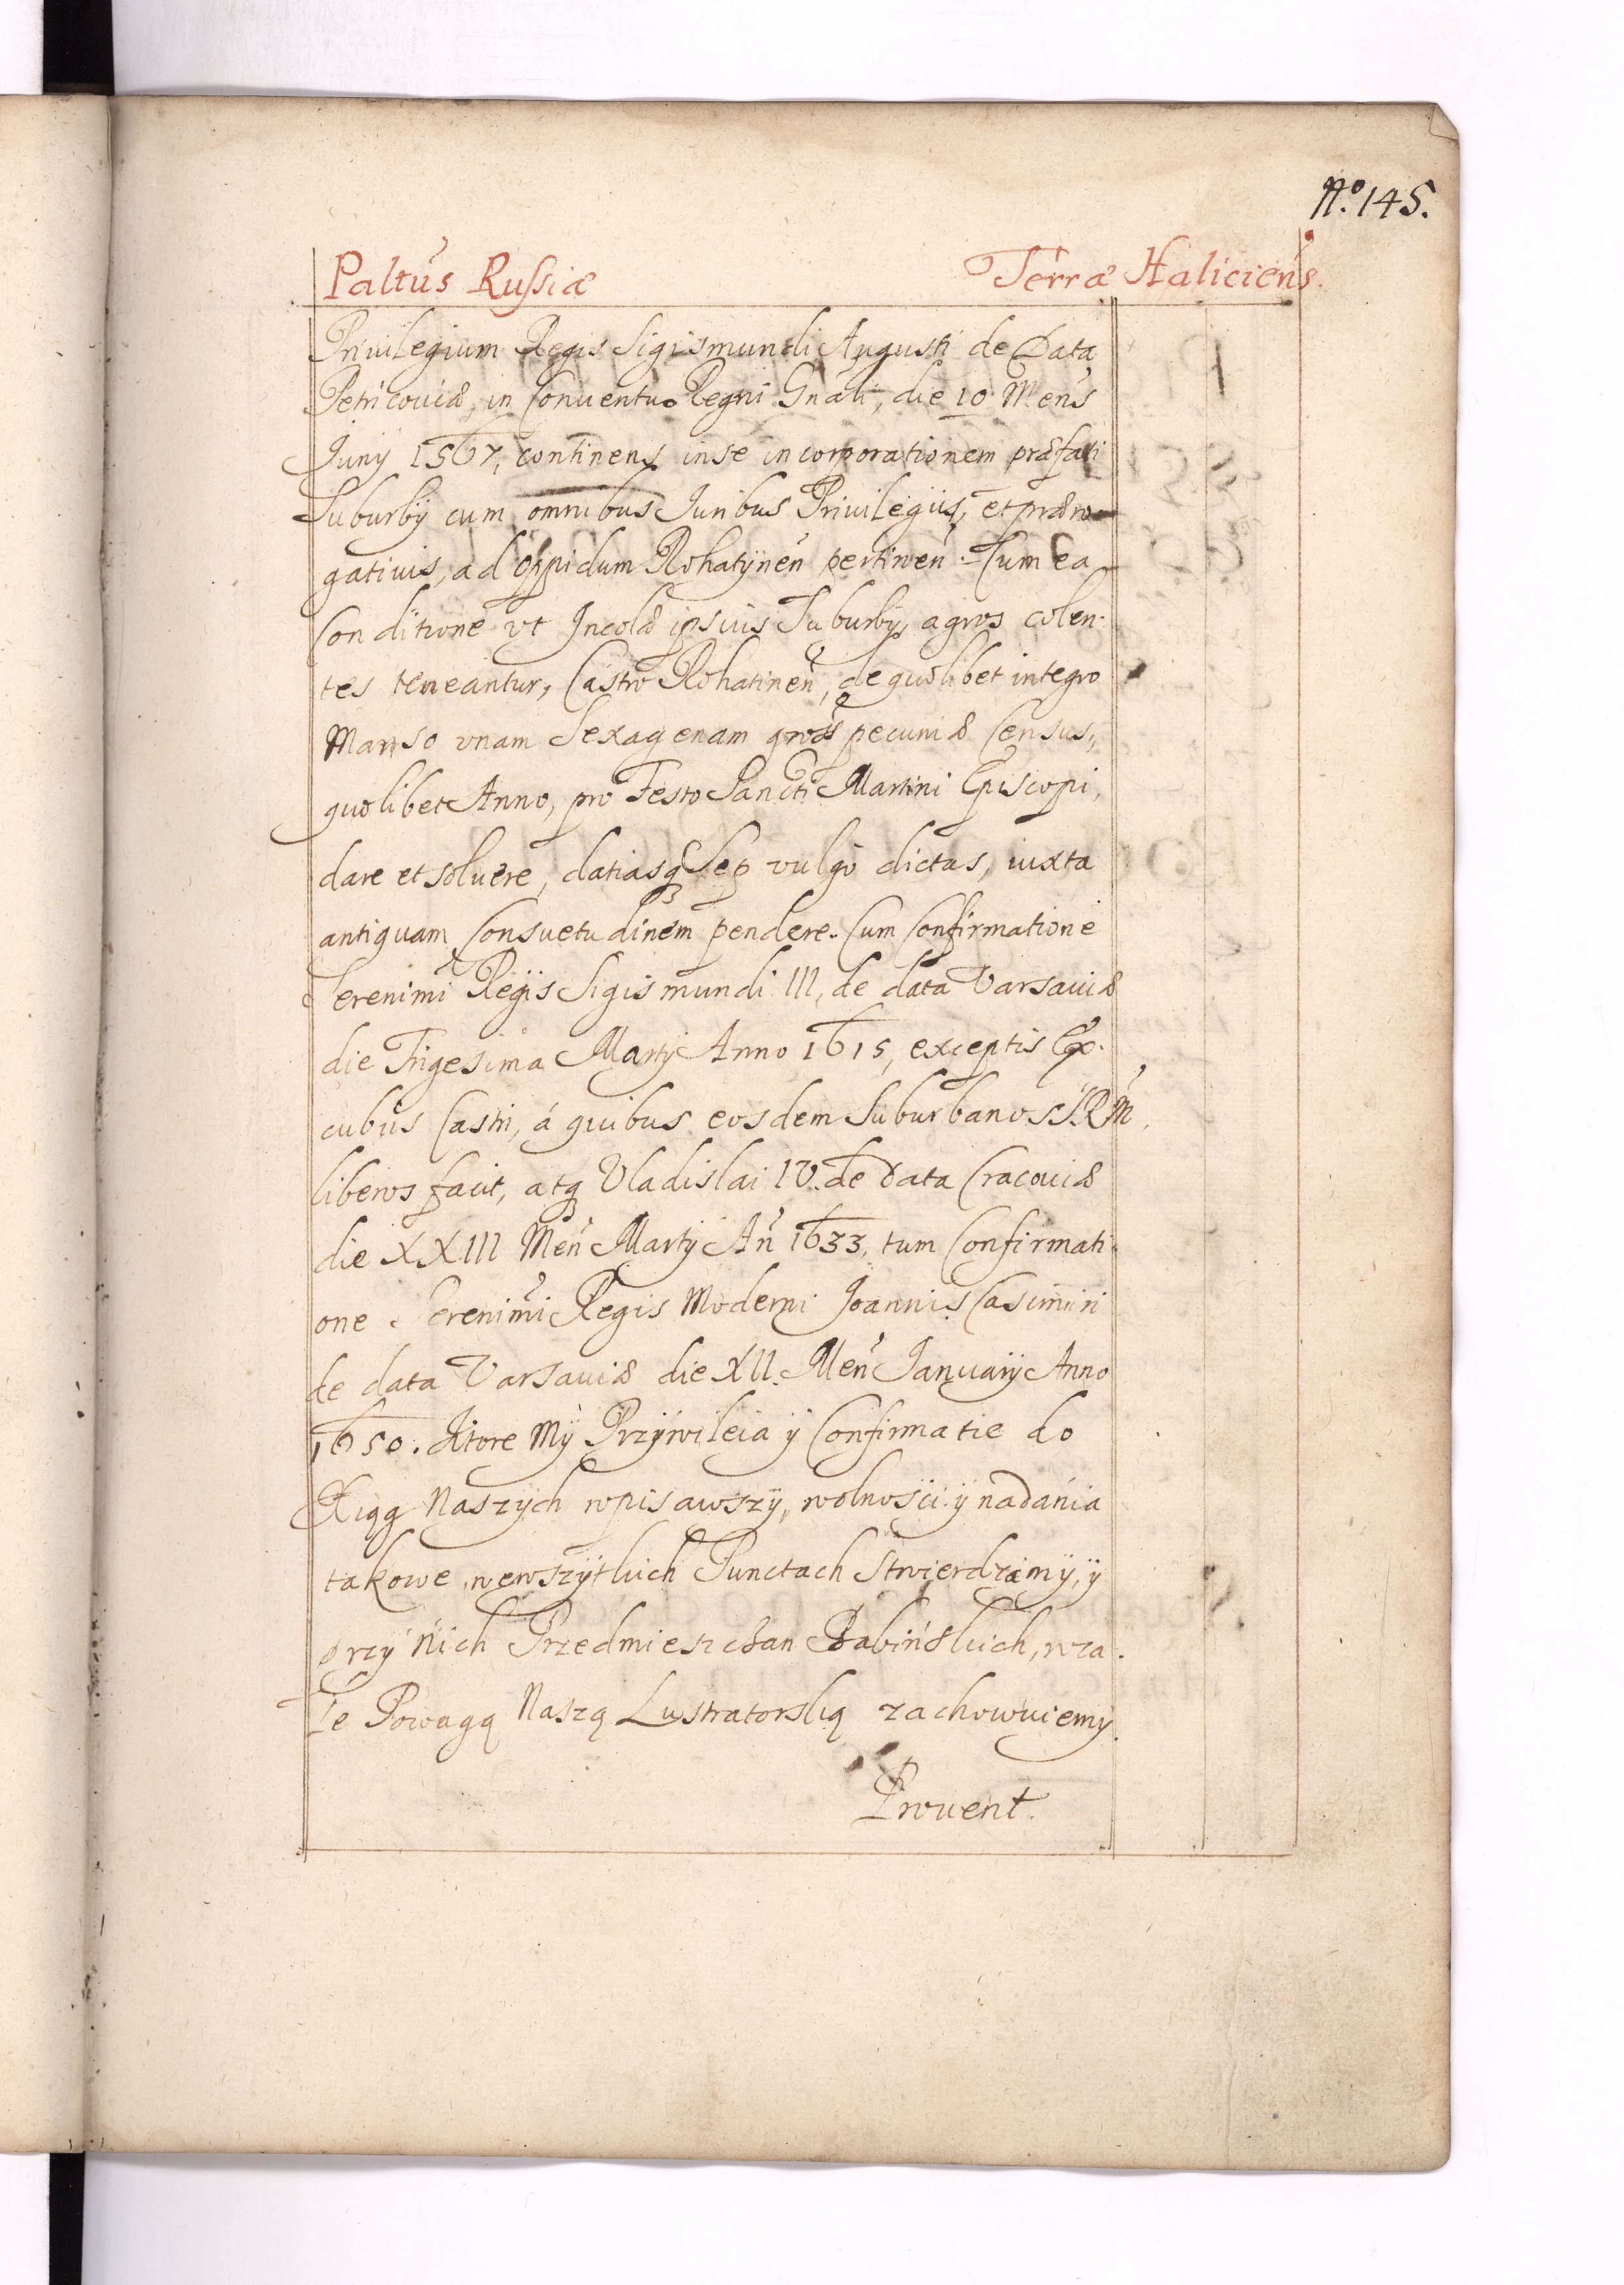 Nº. 145.
Paltus Russiæ Terræ Haliciens.
Priuilegium Regis Sigismundi Augusti de Data
Petricouiæ, in Conuentu Regni Gnali, die 10 Mens
Iuny 1567, continens in se incorporationem præfati
Suburbÿ cum omnibus Iuribus Priuilegiis, et præro-
gatiuis, ad oppidum Rohatÿnen pertinen: Cum ea
Conditione vt Incolæ ipsius Suburbÿ, agros colen-
tes teneantur, Castro Rohatinen, de quolibet integro
Manso vnam Sexagenam gros pecuniæ Census,
quolibet Anno, pro Festo Sancti Martini Episcopi,
dare et soluere, datiasq Sep vulgo dictas, iuxta
antiquam Consuetudinem pendere. Cum Confirmatione
Serenimi Regis Sigismundi III, de data Varsauiæ
die Trigesima Martÿ Anno 1615, exceptis Ex-
cubiis Castri, á quibus eosdem Suburbanos S.R.M.
liberos facit, atq Vladislai IV. de data Cracouiæ
die XXIII Men Martÿ An 1633, tum Confirmati-
one Serenimi Regis Moderni Joannis Casimiri
de data Varsauiæ die XII. Men Januarÿ Anno
1650. Ktore Mÿ Przÿwileia ÿ Confirmatie do
Xiąg Naszÿch wpisawszÿ, wolnosci ÿ nadánia
takowe, wewszÿtkich Punctach Stwierdzamÿ, ÿ
przÿ nich Przedmieszczan Babińskich, wca-
le Powagą Naszą Lustratorską zachowuiemy.
Prouent.